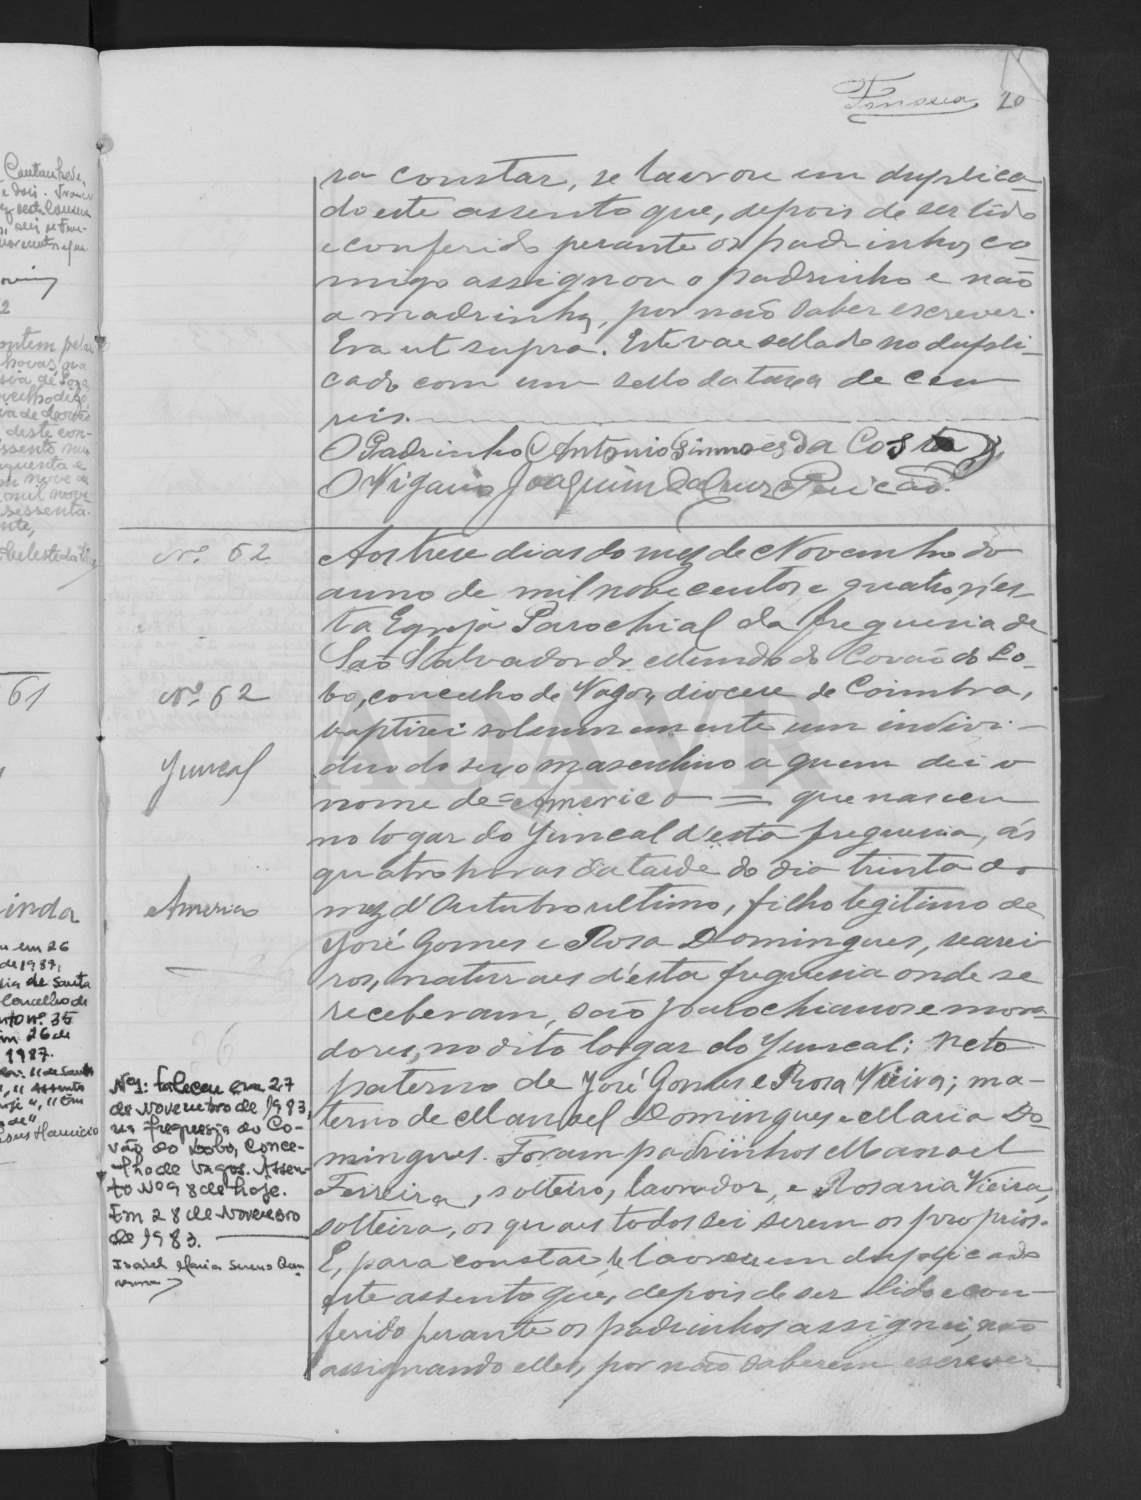 Fonseca 20
ra constar, se lavrou em duplica-
do este assento que, depois de ser lido
e conferido perante os padrinhos, co-
migo assignou o padrinho e não
a madrinha, por não saber escrever.
Era ut supra. Este vae sellado no dupli-
cado com um sello da taxa de cem
reis.
O Padrinho Antonio Simões da Costa
O Vigario Joaquim da Cruz
Nº 62
Aos treze dias do mez de Novembro do
anno de mil nove centos e quatro, n'es-
ta Egreja Parochial da freguesia de
São Salvador do Mundo do Covão do Lo-
Nº 62
bo, concelho de Vagos, diocese de Coimbra,
baptizei solemnemente um indivi-
duo do sexo masculino a quem dei o
Juncal
nome de = Americo = que nasceu
no logar do Juncal d'esta freguesia, ás
quatro horas da tarde do dia trinta do
Americo
mez d'Outubro ultimo, filho legitimo de
José Gomes e Rosa Domingues, searei-
ros, naturaes d'esta freguesia onde se
receberam, são parochianos e mora-
dores, no dito logar do Juncal; Neto
paterno de José Gomes e Rosa Vieira; ma-
terno de Manoel Domingues e Maria Do-
mingues. Foram padrinhos Manoel
Ferreira, solteiro, lavrador, e Rosaria Vieira,
solteira, os quaes todos sei serem os proprios.
E, para constar, se lavrou em duplicado
este assento que, depois de ser lido e con-
ferido perante os padrinhos assignei, não
assignando elles, por não saberem escrever
Nº 1: faleceu em 27
de Novembro de 1983,
na freguesia do Co-
vão do Lobo, Conce-
lho de Vagos. Assen-
to Nº 98 de hoje.
Em 28 de Novembro
de 1983.
Isabel Maria Sereno
ADAVR
61
inda
em 26
de 1987,
sia de Santa
Concelho de
nto nº. 35
m 26 de
1987.